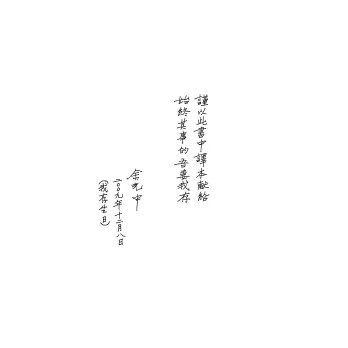 謹以此書中譯本獻給
始終其事的吾妻我存
余光中
二○○九年十二月八日
(我存生日)